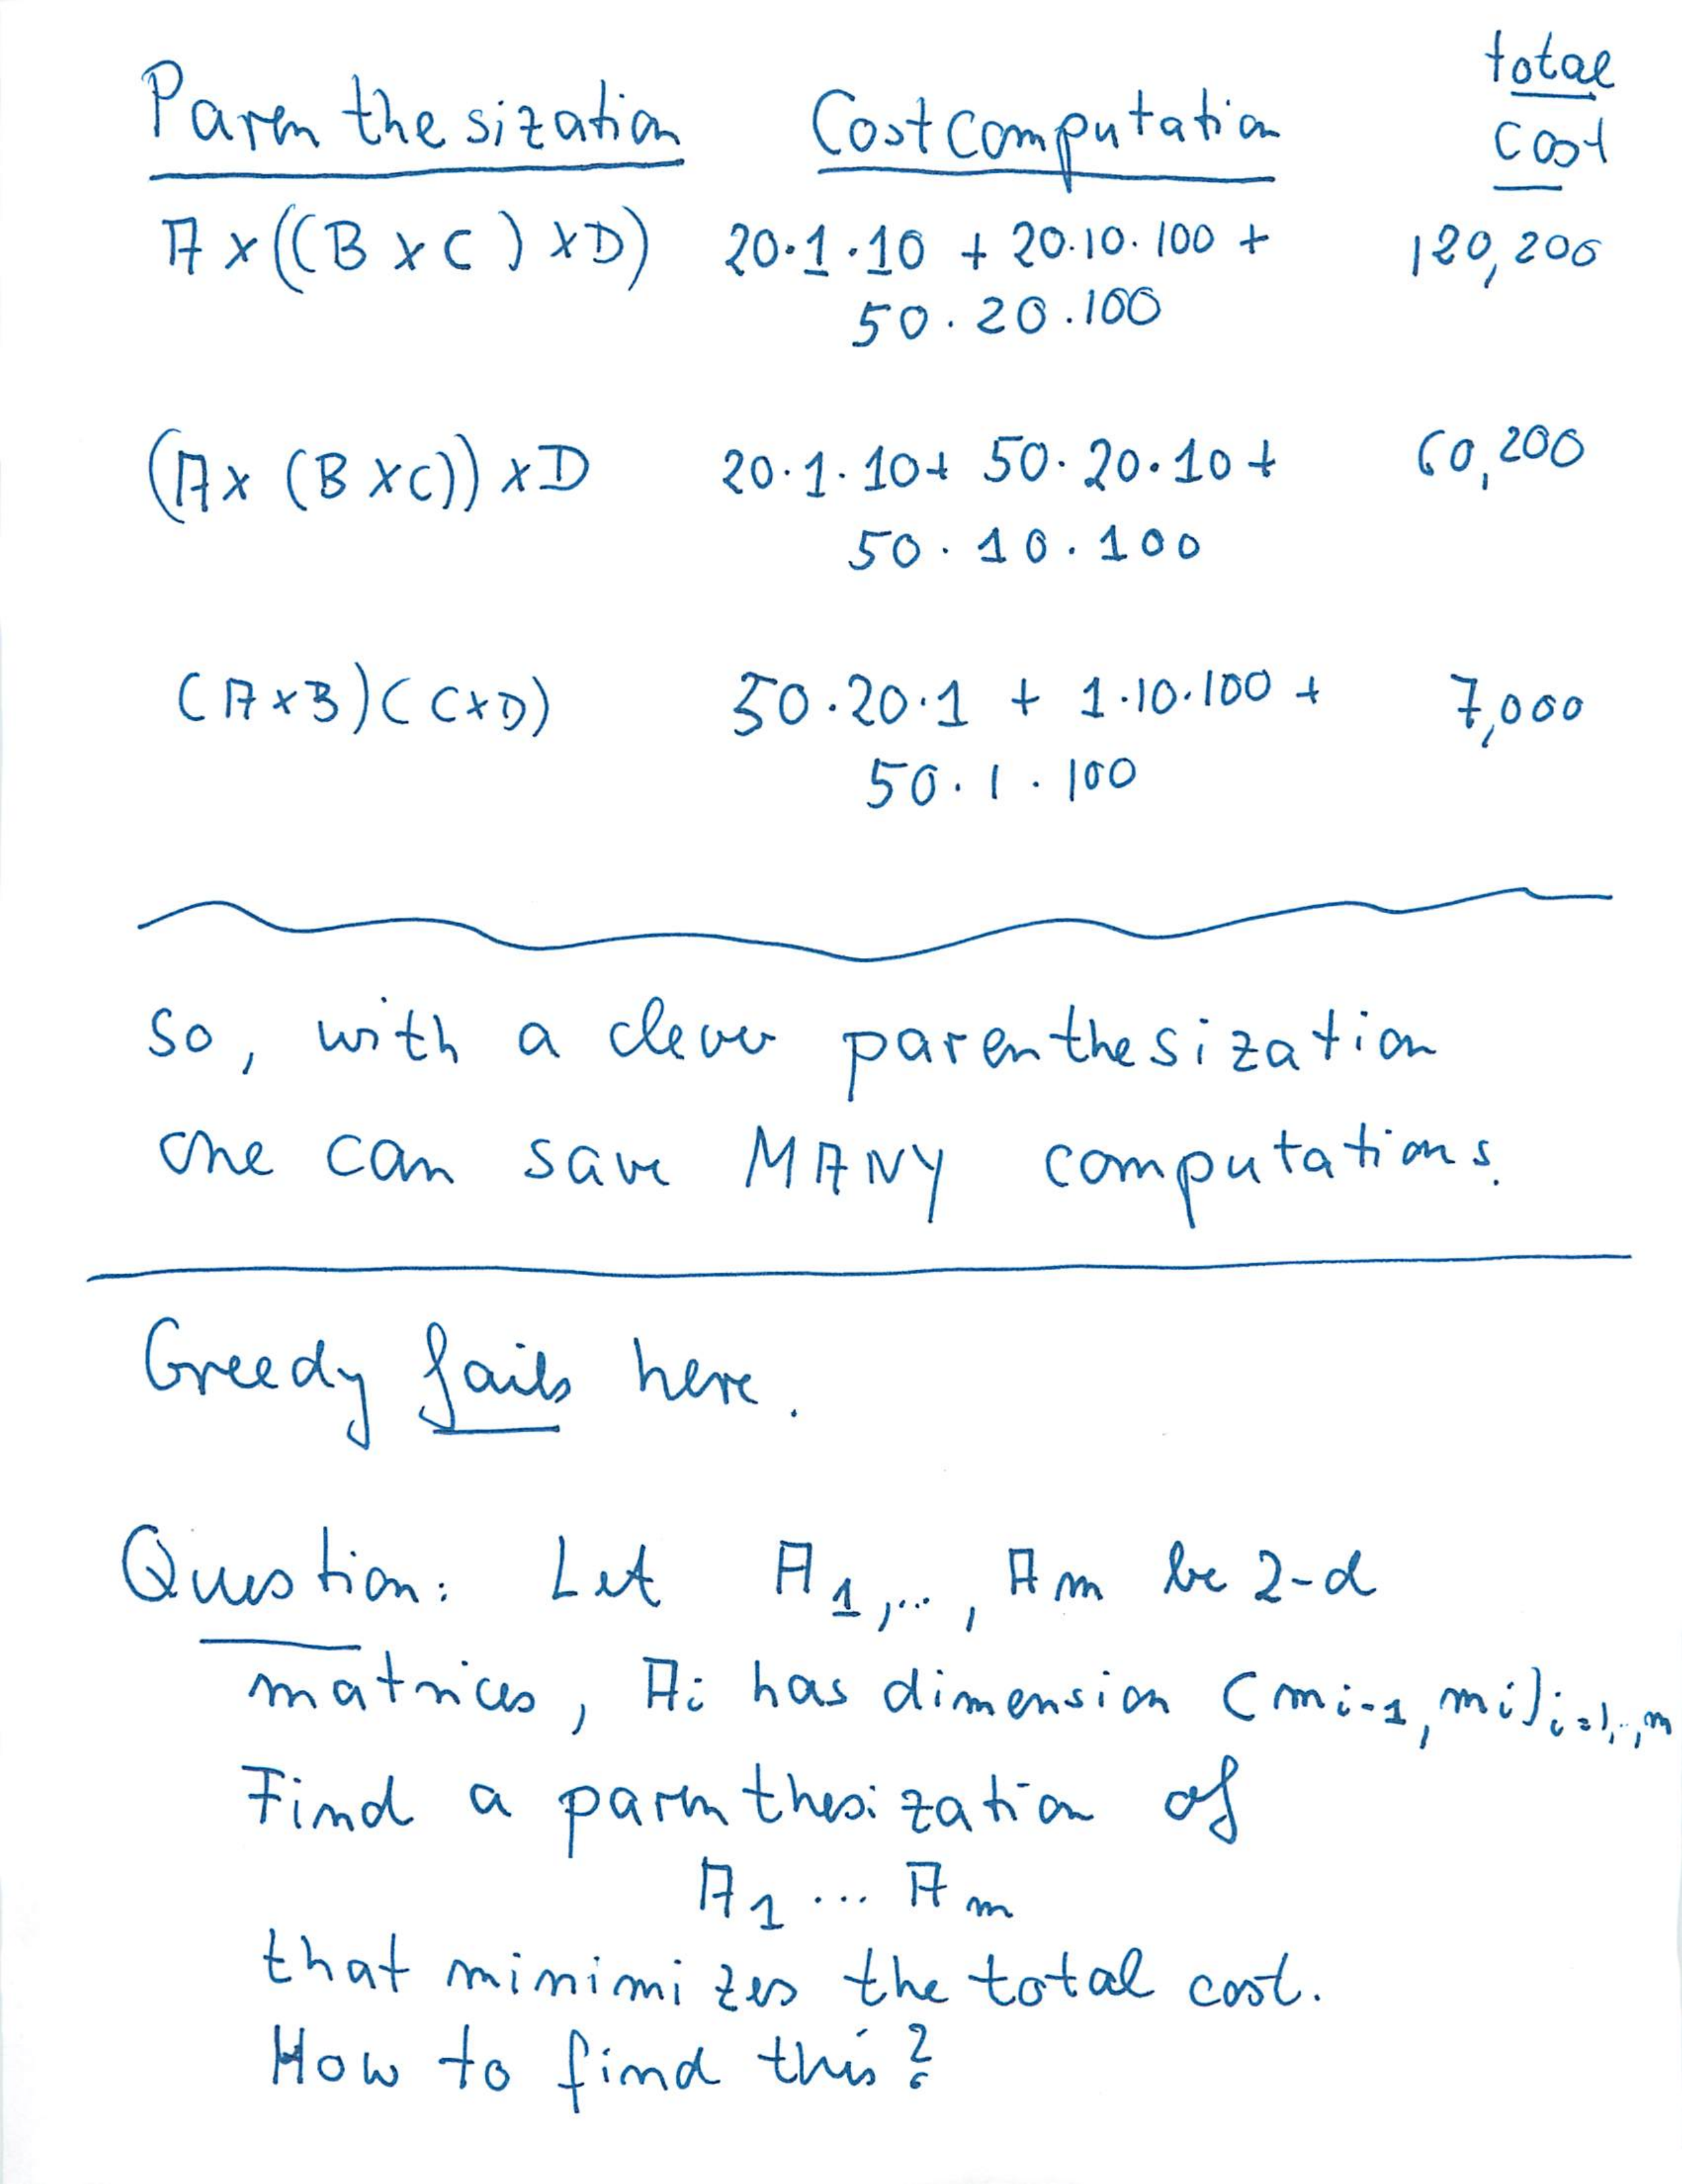 total
Parenthesization Cost computation cost
A x ((B x C) x D) 20·1·10 + 20·10·100 + 120,200
50·20·100
(A x (B x C)) x D 20·1·10 + 50·20·10 + 60,200
50·10·100
(A x B)(C x D) 50·20·1 + 1·10·100 + 7,000
50·1·100
so, with a clever parenthesization
one can save MANY computations.
Greedy fails here.
Question: Let A1,..., Am be 2-d
matrices, Ai has dimension (mi-1, mi)i=1,..,m
Find a parenthesization of
A1 ... Am
that minimizes the total cost.
How to find this?